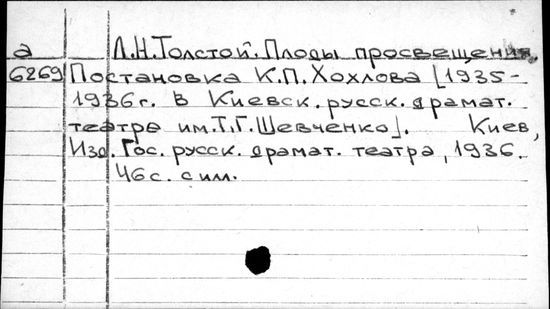 а Л.Н.Толстой. Плоды просвещения.
6269 Постановка К.П.Хохлова [1935-
1936г. в Киевск. русск. драмат.
театре им.Т.Г.Шевченко]. Киев,
Изд. Гос. русск. драмат. театра, 1936.
46с. с илл.